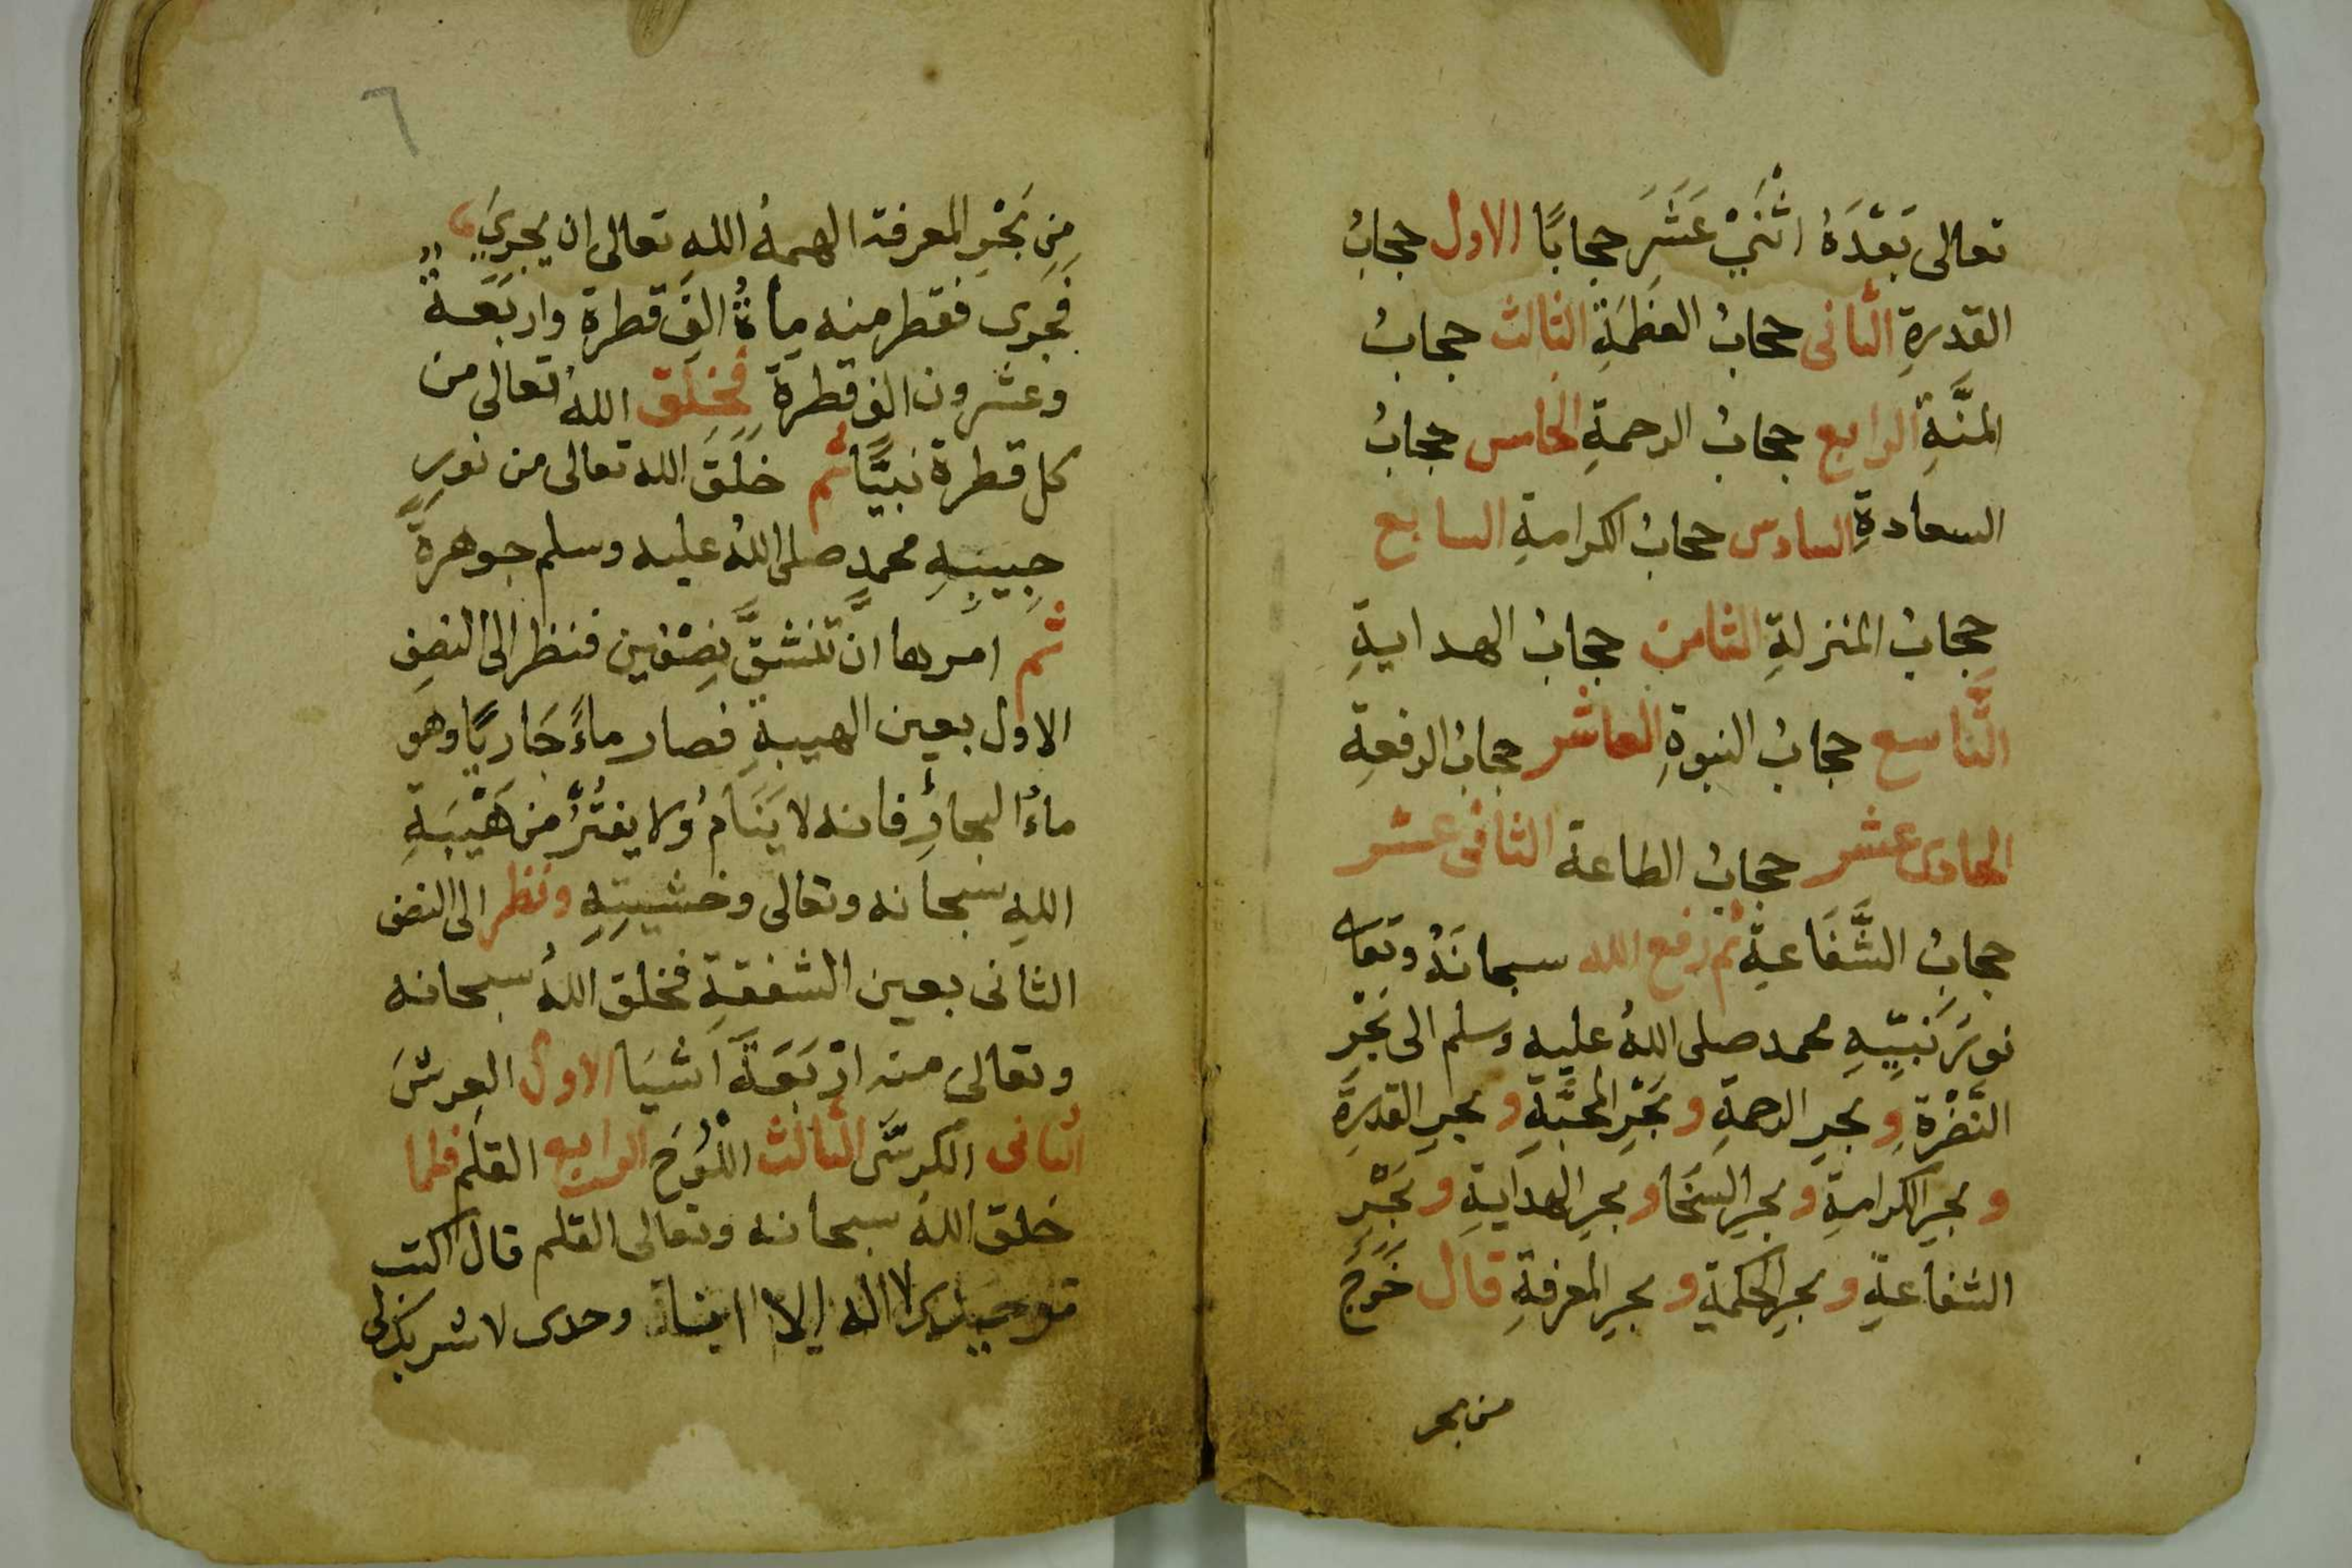 تعالى بَعْدَهُ اثْنَيْ عَشَرَ حجابًا الاول حجابُ
القدرةِ الثانى حجابُ العظَمَةِ الثالث حجابُ
المنَّةِ الرابع حجابُ الرحمةِ الخامس حجابُ
السعادةِ السادس حجابُ الكرامةِ السابع
حِجابُ المنزلةِ الثامن حجابُ الهدايةِ
التَّاسع حجابُ النبوةِ العاشر حجابُ الرفعةِ
الحادى عشر حجابُ الطاعة الثانى عشر
حجابُ الشَّفَاعةِ ثم رفع الله سبحانَهُ وتعا
نورَ نَبيّهِ محمد صلى اللهُ عليه وسلم الى بَحْرِ
النَّضْرَةِ و بحرِ الرحمةِ و بَحْرِ المحَبَّةِ و بحرِ القدرةِ
و بحرِ الكرامةِ و بحرِ السَخَا و بحرِ الهدايةِ و بَحْرِ
الشفاعةِ و بحرِ الحكمةِ و بحرِ المعرفةِ قال خَرَجَ
من بحر
٦
مِن بَحْرِ المعرفة الهمهُ الله تعالى ان يجرىَ
فَجَرى فقطر منه مِأةُ الفَ قطرةٍ واربَعةُ
وعشرون الف قطرة فَخَلَق اللهُ تعالى من
كل قطرة نبيًّا ثم خَلَقَ الله تعالى من نورِ
حبيبِهِ محمدٍ صلى اللهُ عليه وسلم جوهرةً
ثم امرها انْ تَنْشَقَّ نِصْفين فنظر الى النصفِ
الاول بعين الهيبةِ فصار ماءً جَاريًا وهو
ماءُ البحارِ فانه لا يَنَامُ ولا يفتُرُ من هَيْبَةِ
اللهِ سبحانه وتعالى وخشيتِهِ ونظر الى النصف
الثانى بعين الشفقةِ فخلق اللهُ سبحانه
وتعالى منه ارْبَعَةَ اَشْيَا الاول العرشَ
الثانى الكرسَّى الثالث اللَوْحَ الرابع القلَم فلما
خلق اللهُ سبحانه وتعالى القلم قال اكتب
توحيدى لا اله الا انا وحدى لا شريك لى